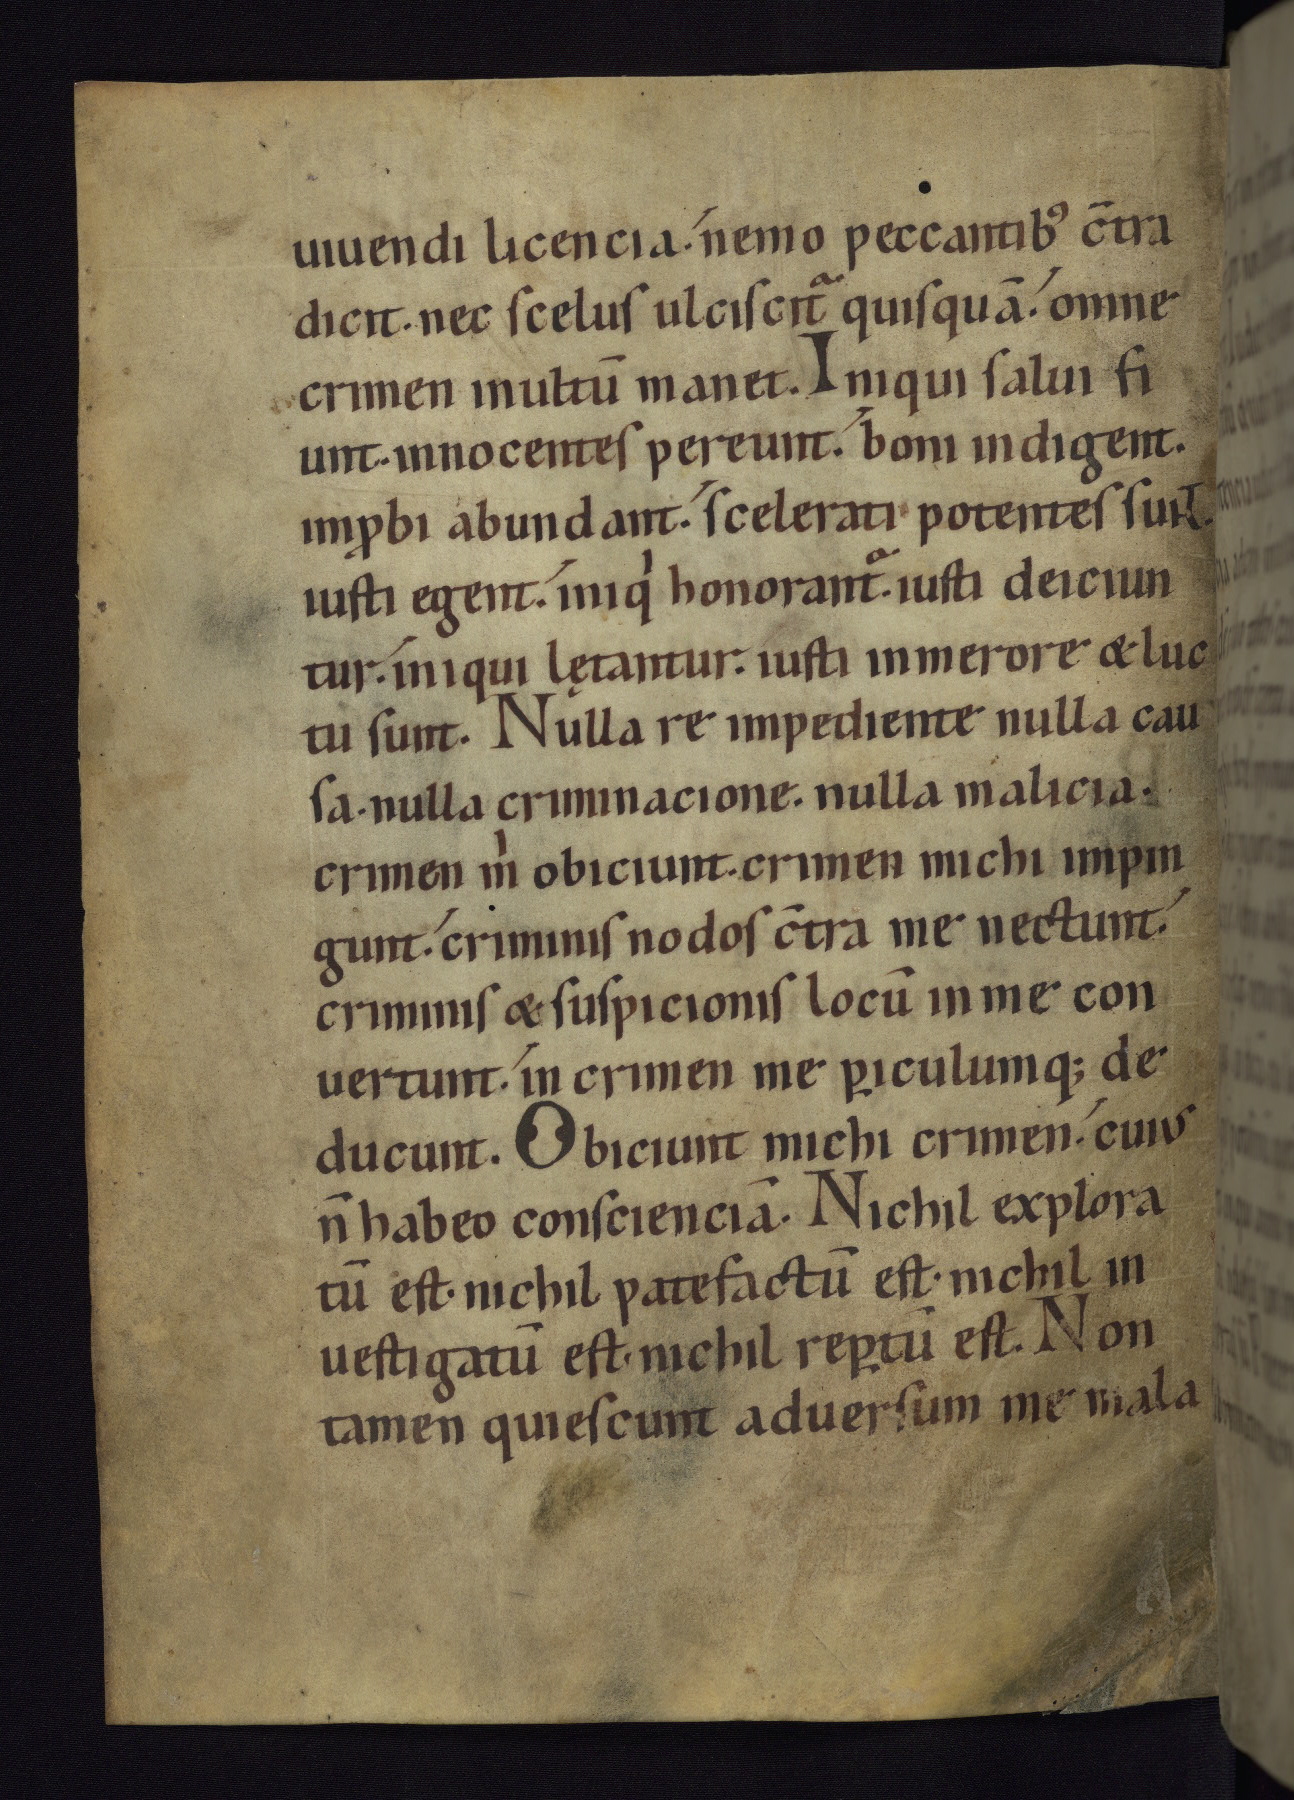 uiuendi licencia. nemo peccantibꝰ c̄tra
dicit. nec scelus ulciscit᷑ quisquā. omne
crimen inultū manet. Iniqui salui fi
unt. innocentes pereunt. boni indigent.
imꝓbi abundant. scelerati potentes sunt.
iusti egent. iniqͥ honorant᷑. iusti deiciun
tur. iniqui lętantur. iusti in merore & luc
tu sunt. Nulla re impediente nulla cau
sa. nulla criminacione. nulla malicia.
crimen mͥ obiciunt. crimen michi impin
gunt. criminis nodos c̄tra me nectunt.
criminis & suspicionis locū in me con
uertunt. in crimen me ꝑiculumq; de
ducunt. Obiciunt michi crimen. cuius
n̄ habeo conscienciā. Nichil explora
tū est. nichil patefactū est. nichil in
uestigatū est. nichil reꝑtū est. Non
tamen quiescunt aduersum me mala